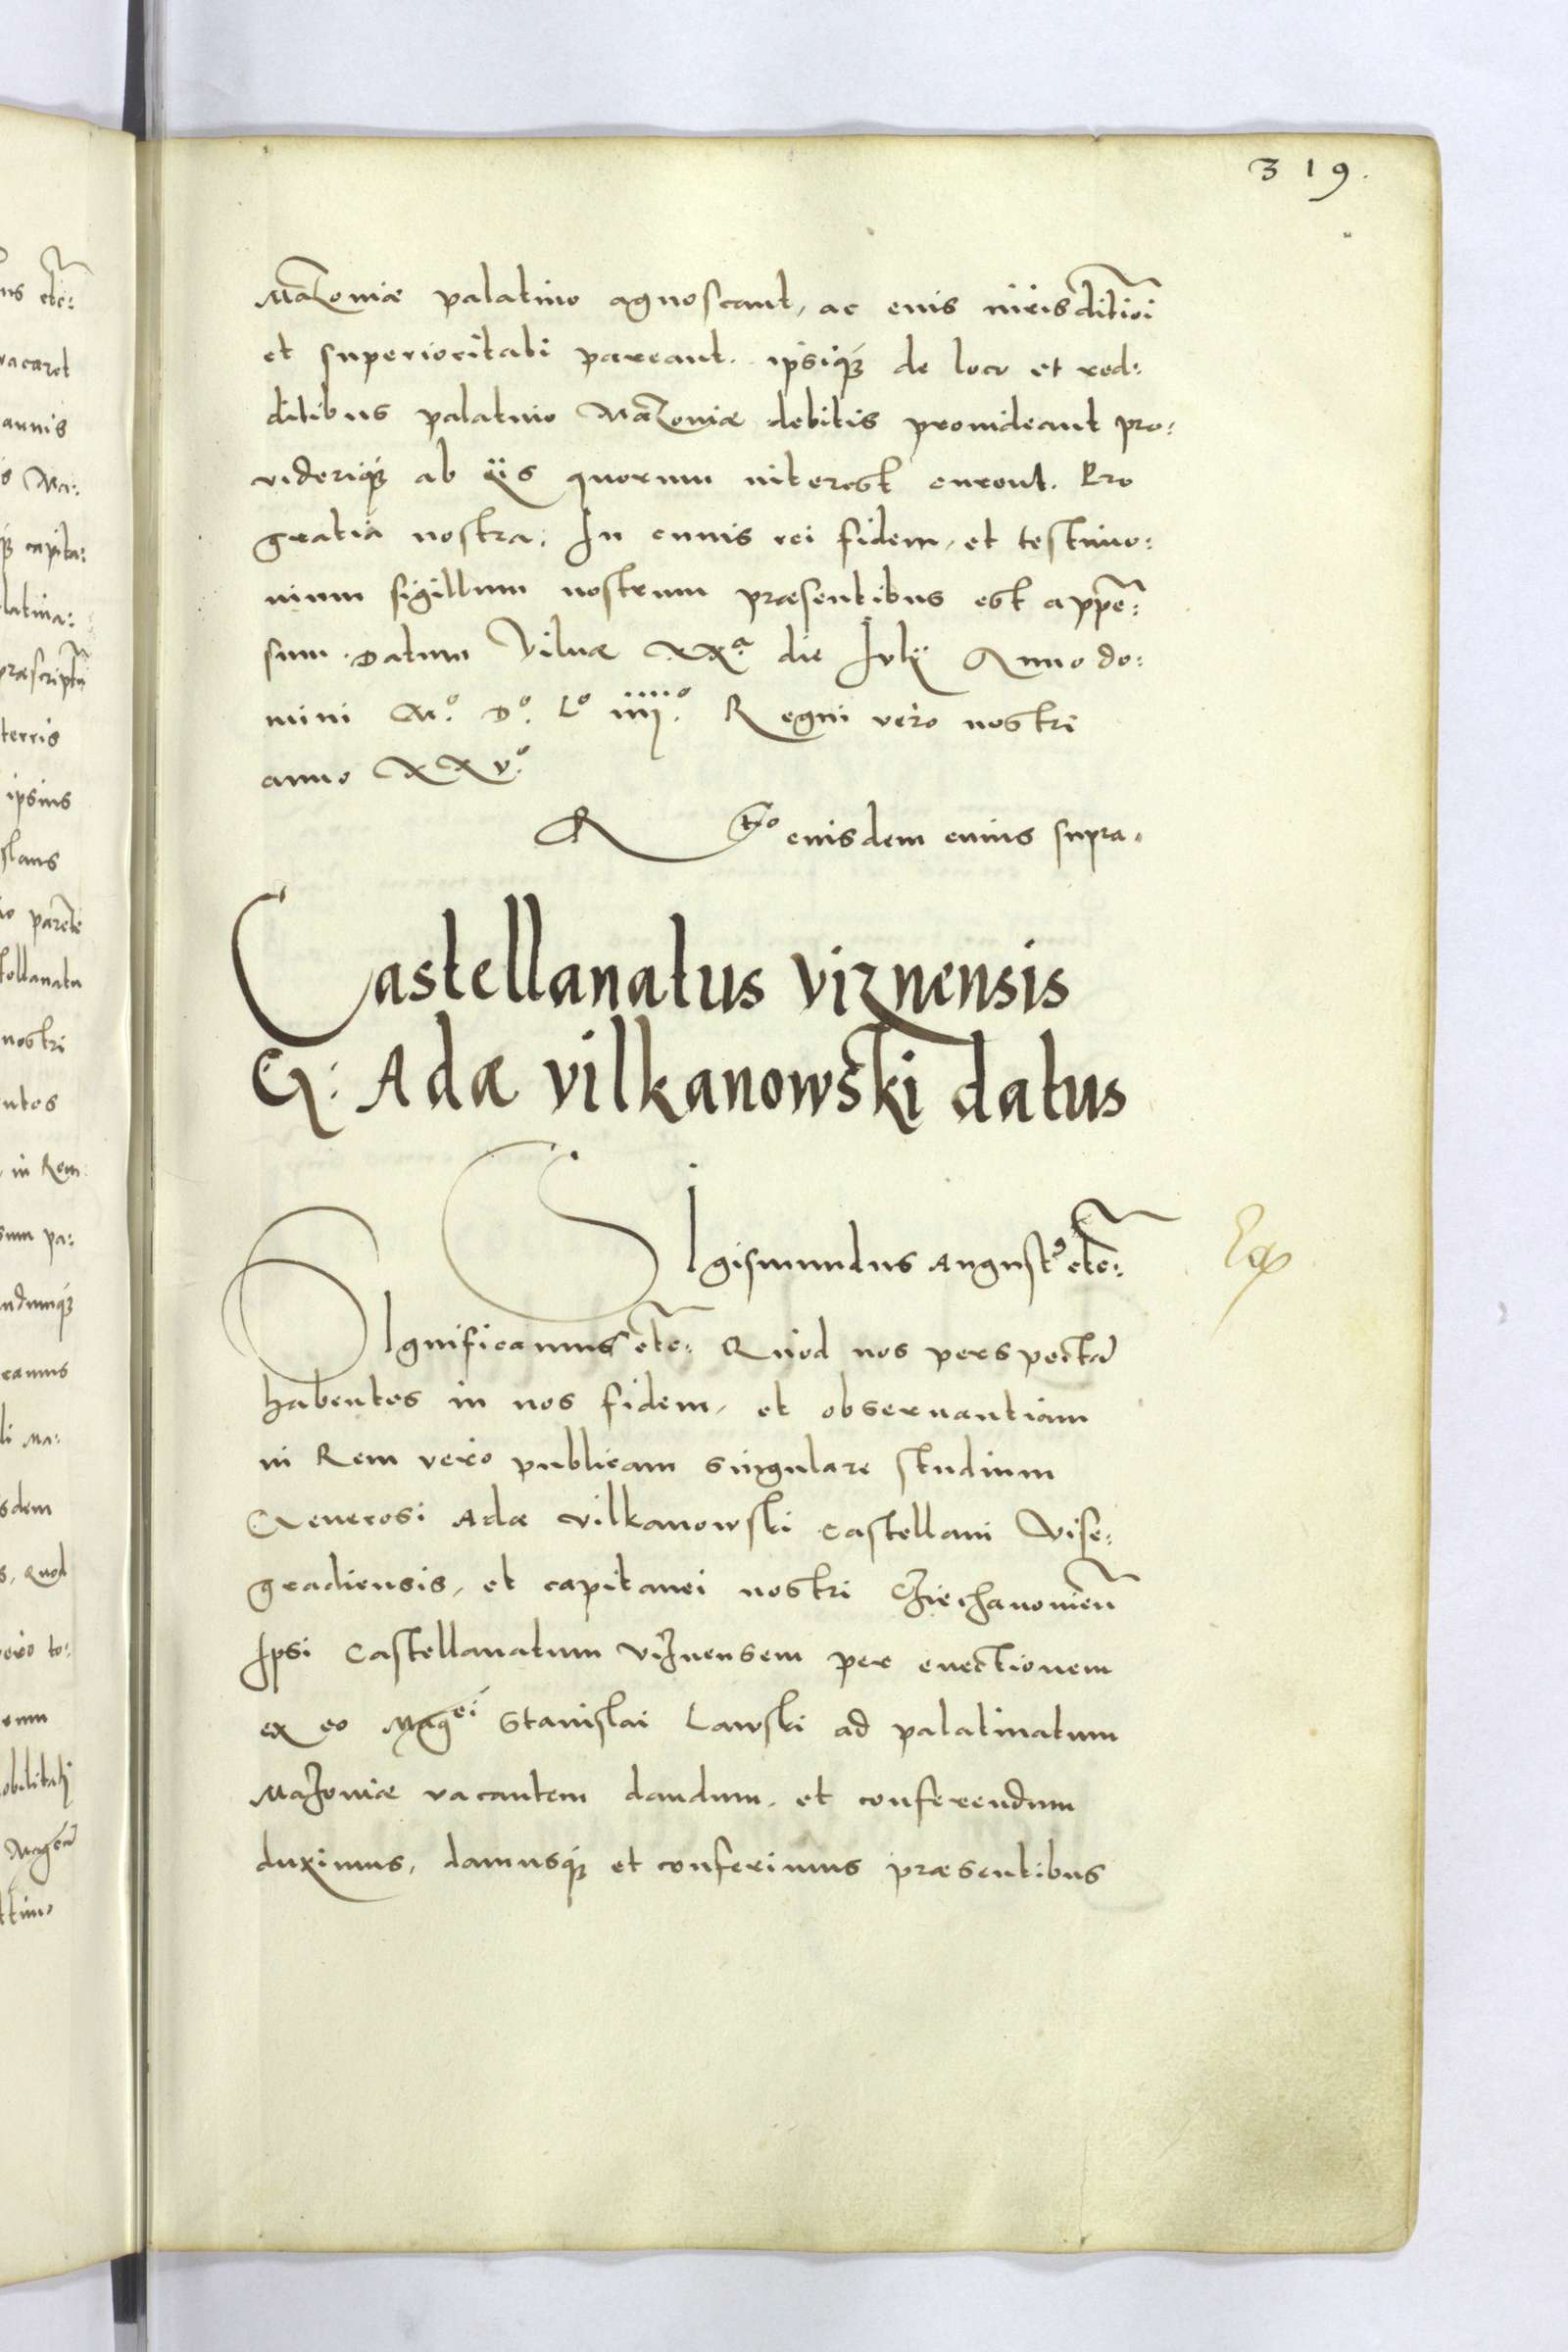 319.
Mazoviæ palatino agnoscant, ac eius iurisditioni
et superioritati pareant. ipsiq3 de loco et red:
ditibus palatino Mazoviæ debitis provideant pro:
videriq3 ab iis quorum interest curent. Pro
gratia nostra. In cuius rei fidem, et testimo:
nium sigillum nostrum præsentibus est appen:
sum. Datum Vilnæ XXa. die Julij Anno do:
mini Mo. Do. Lo iiiio. Regni vero nostri
anno XXVo.
R to eiusdem cuius supra.
Castellanatus viznensis
G: Adæ vilkanowski datus
SIgismundus August9 etc:
SIgnificamus etc: Quod nos perspectā
habentes in nos fidem, et observantiam
in Rem vero publicam singulare studium
Generosi Adæ vilkanowski castellani Vise:
gradiensis, et capitanei nostri Cziechanovien̄
Ipsi Castellanatum viznensem per evectionem
ex eo Magci Stanislai Lawski ad palatinatum
Mazoviæ vacantem dandum, et conferendum
duximus, damusq3 et conferimus præsentibus